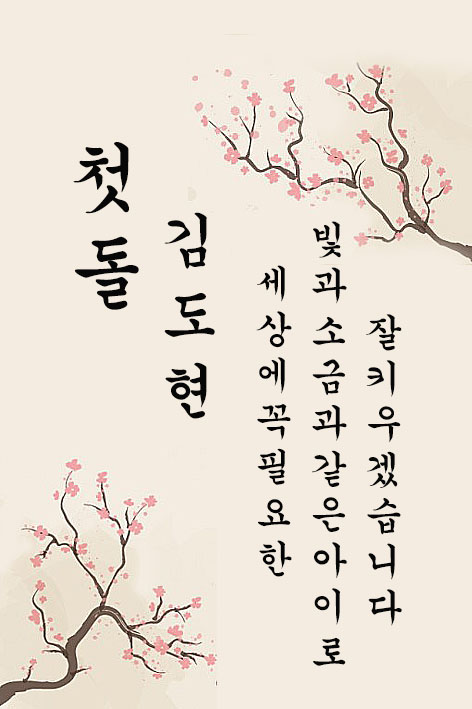 첫돌
김도현
세상에꼭필요한
빛과소금과같은아이로
잘키우겠습니다